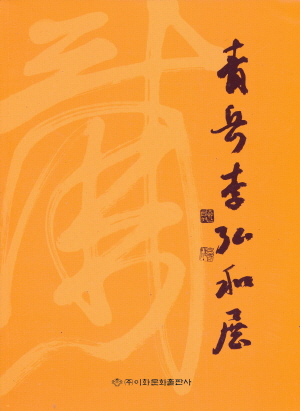 靑岳李弘和展
㈜이화문화출판사